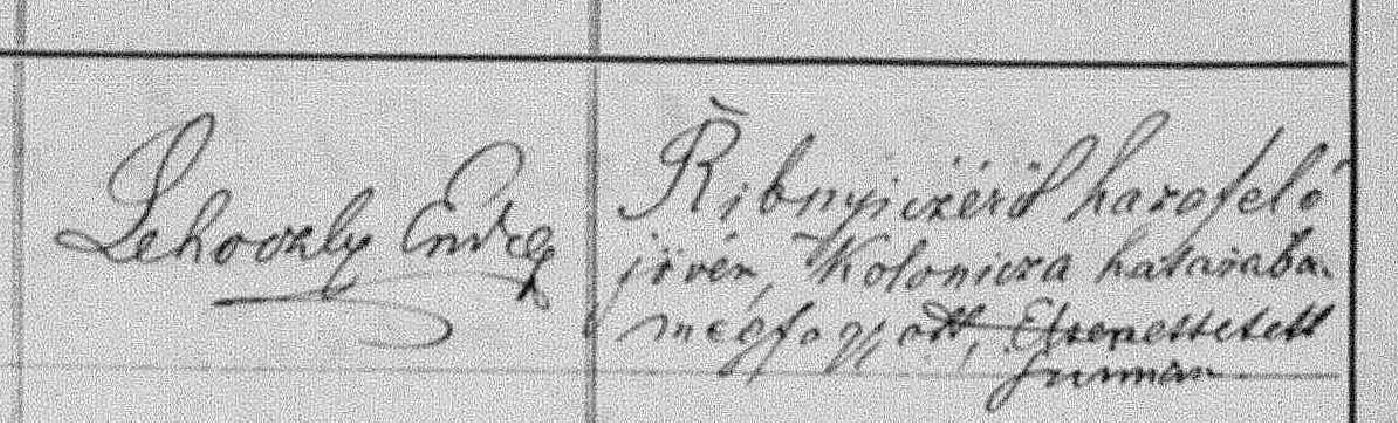 Lehoczky Endre
Ribnyiczéről hazafelé
jövén, Kolonicza határába.
megfagyott, Eltemettetett
Juniuson